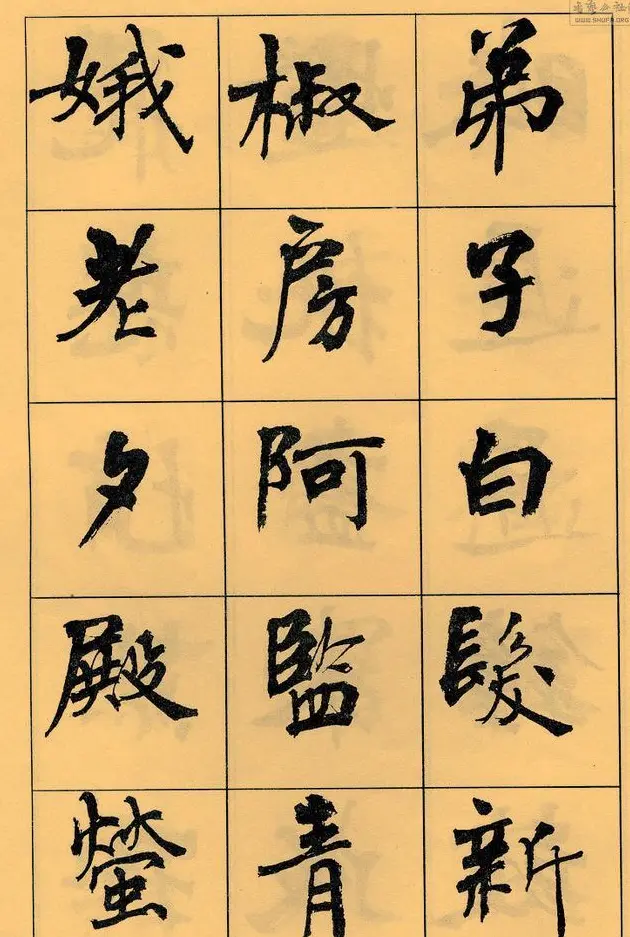 弟子白髮新
椒房阿監青
娥老夕殿螢
WWW.SHUFA.ORG